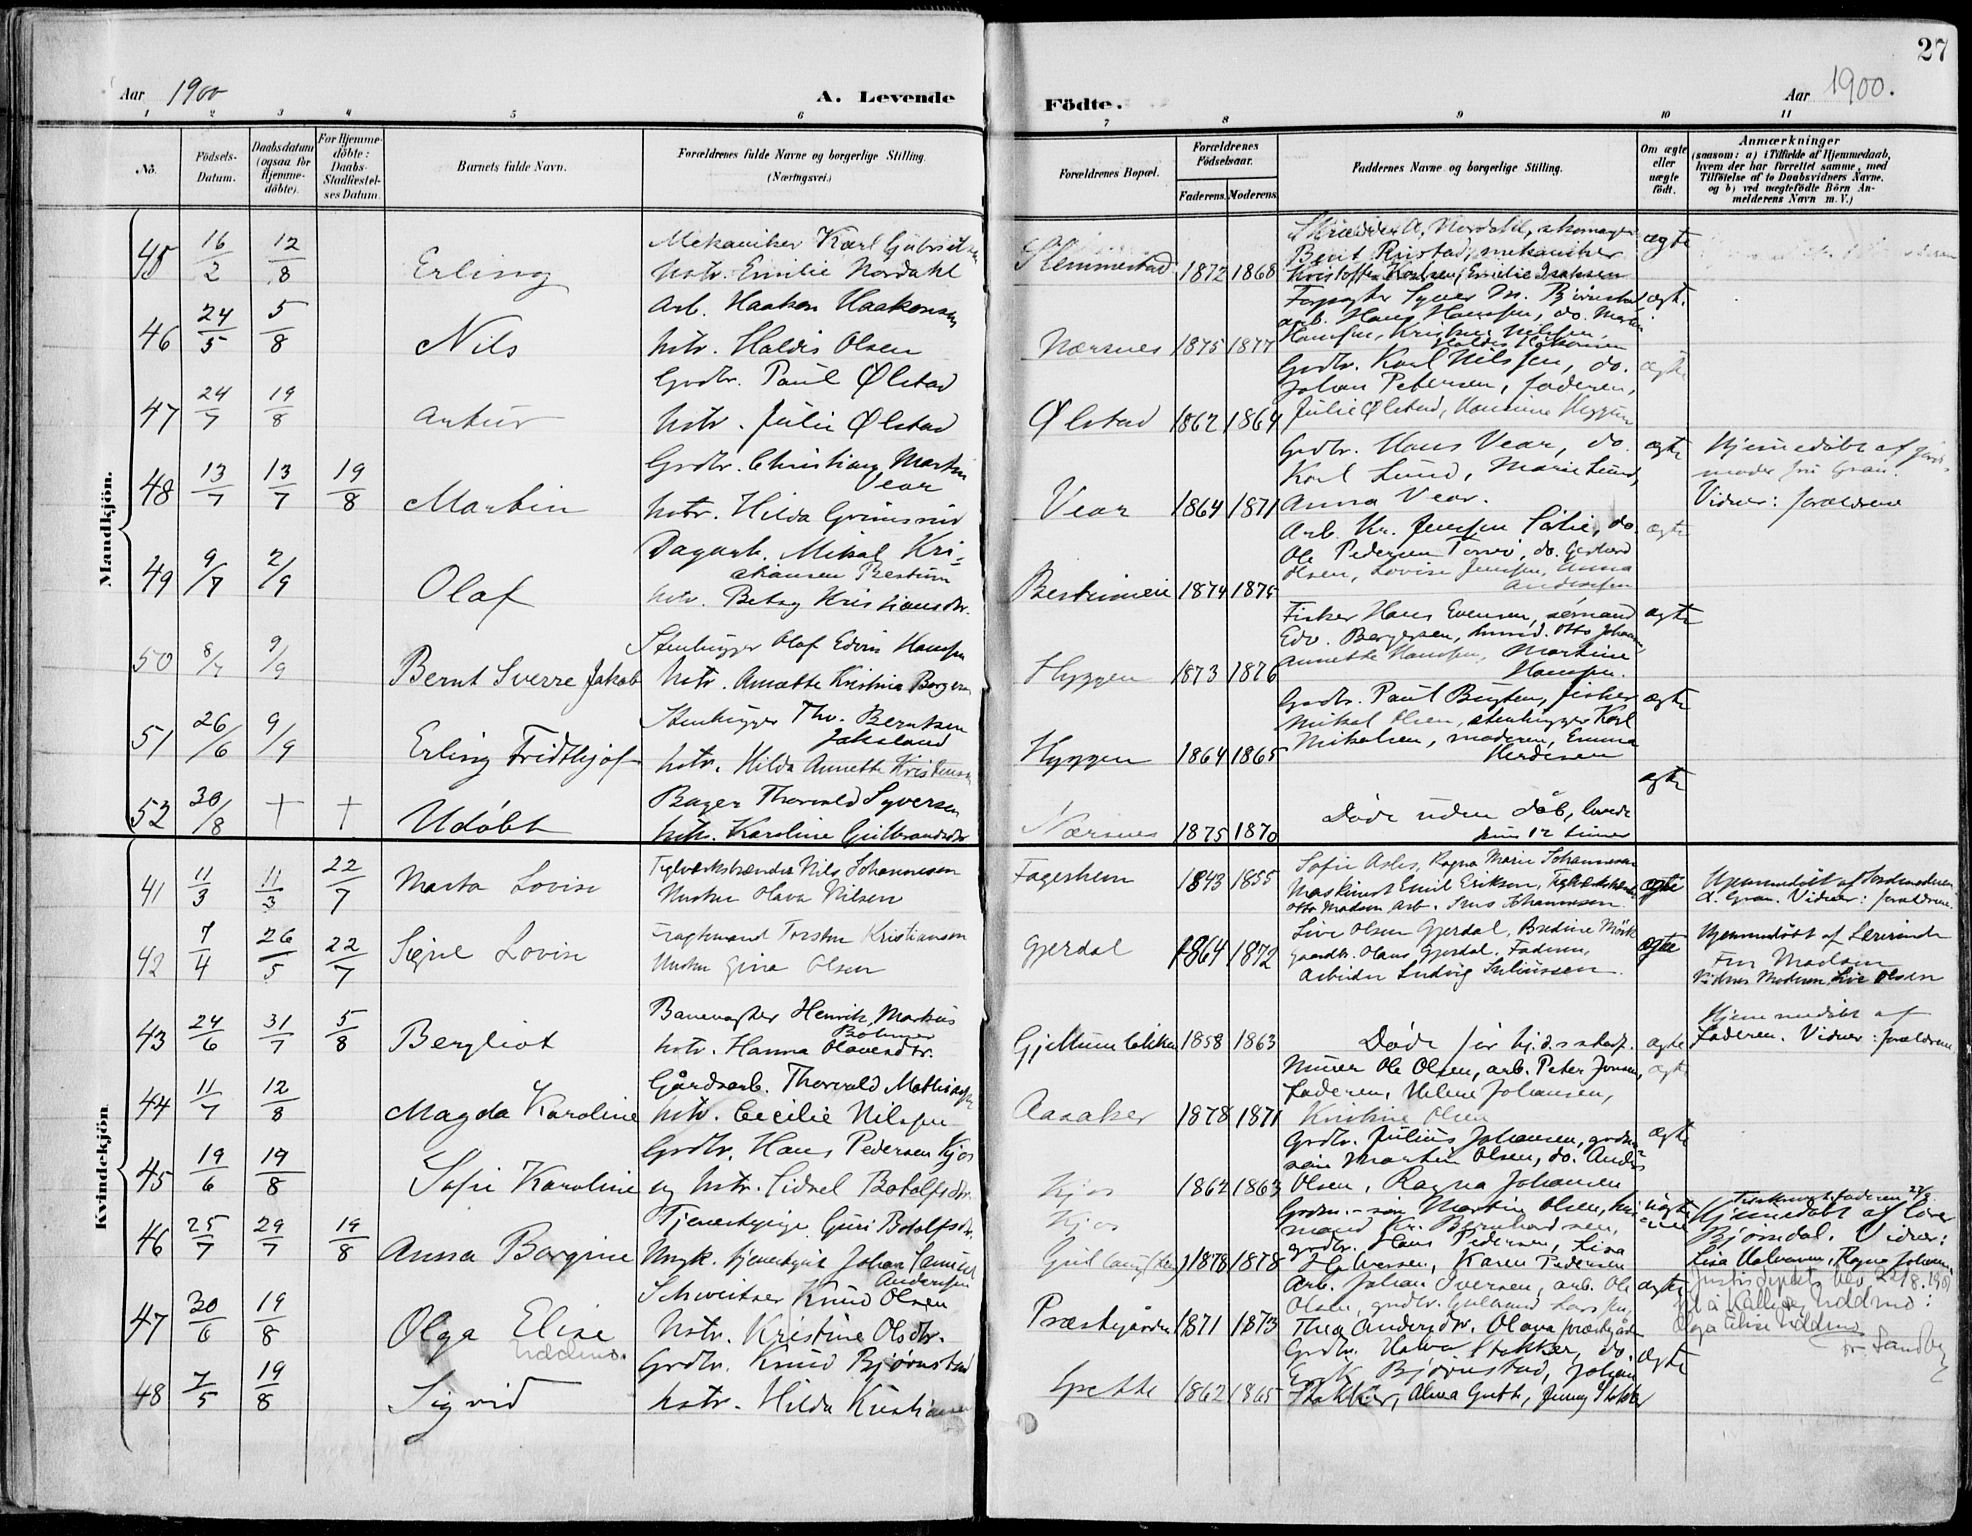 27
Aar 1900
A. Levende
Födte.
Aar 1900.
1 2 3 4 5 6 7 8 9 10 11
No.
Födsels-
Datum.
Daabsdatum
(ogsaa for
Hjemme-
döbte).
For Hjemme-
döbte:
Daabs-
Stadfæstel-
ses Datum
Barnets fulde Navn.
Forældrenes fulde Navne og borgerlige Stilling.
(Næringsvei.)
Forældrenes Bopæl.
Forældrenes
Födselsaar.
Faderens. Moderens.
Faddernes Navne og borgerlige Stilling.
Om ægte
eller
uægte
födt.
Anmærkninger
(saasom: a) i Tilfælde af Hjemmedaab,
hvem der har forrettet samme, med
Tilföielse af to Daabsvidners Navne,
og b) ved uægtefödte Börn An-
melderens Navn m. V.)
Mandkjön.
45 16/2 12/8 Erling
Mekaniker Karl Gabrielsen
hstr. Emilie Nordahl
Slemmestad 1872 1868
Nordahl, skomager
Berit Rustad, mekaniker
Kristoffer Karlsen, Emilie Isaksen
ægte
46 24/5 5/8 Nils
Arb. Haakon Haakonsen
hstr. Haldis Olsen
Nærsnes 1875 1877
Forpagter Syver M. Bjørnstad
arb. Hans Hansen, do. Martin
Hansen, Kristine Nilsen
ægte.
47 24/7 19/8 Artur
Grdbr. Paul Ølstad
hstr. Julie Ølstad
Ølstad 1862 1864
Grdbr. Karl Nilssen, do.
Johan Petersen, faderen,
Julie Ølstad,
ægte
48 13/7 13/7 19/8 Martin
Grdbr. Christian Martin
Vear
hstr. Hilda Grimsrud
Vear 1864 1871
Grdbr. Hans Vear, do.
Karl Lund, Marie Lund,
Anna Vear.
ægte
Hjemmedøbt af jord-
moder fru Gran.
Vidner: forældrene
49 9/7 2/9 Olaf
Dagarb. Mikal Kri-
stiansen Bestum
hstr. Betsy Kristiansdtr.
1874 1875
Arb. Kr. Jensen do.
Ole Pedersen do. Gerhard
Olsen, Lovise Jensen, Anna
Andersen
ægte
50 8/7 9/9 Bernt Sverre Jakob
Stenhugger Olaf Edvin Hansen
hstr. Annette Kristine Borgersen
Hyggen 1873 1876
Fisker Hans Evensen, sømand
Edv. Bergersen, Otto Johansen
Annette Hansen, Martine
Hansen.
ægte
51 26/6 9/9 Erling Fridthjof
Stenhugger Thv. Berntsen
Jaksland
hstr. Hilda Annette Kristensen
Hyggen 1864 1865
Grdbr. Paul Bugten, fisker
Mikal Olsen, stenhugger Karl
Mikalsen, moderen, Emma
ægte
52 30/8 + + Udøbt
Bager Thorvald Syversen
hstr. Karoline Gulbrandsdtr
Nærsnes 1875 1870
Døde uden dåb, levede
kun 12 timer
ægte
Kvindekjön.
41 11/3 11/3 22/7 Marta Lovise
Teglværksbrænder Nils Johannesen
Hustru Olava Nilsen
Fagerheim 1843 1855
Sofie Aslev, Ragna Marie Johannesen
Maskinist Emil Eriksen,
Otto Madsen Arb. Jens Johannesen
ægte
Hjemmedöbt af Jordmoderen
L. Gran. Vidner: forældrene.
42 7/4 26/5 22/7 Signe Lovise
Fragtmand Torsten Kristiansen
Hustru Gina Olsen
Gjerdal 1864 1872
Live Olsen Gjerdal, Bredine Mörk
Gaardbr. Olaus Gjerdal, Faderen,
Arbeider Ludvig Juliussen.
ægte
Hjemmedöbt af Lærerinde
Frk Madsen
Vidner Moderen, Live Olsen
43 24/6 31/7 5/8 Bergliot
Banevogter Henrik Markus
Böhmer
hstr. Hanna Olavesdtr.
1858 1863
Døde før hj.d. s stadf.
ægte
Hjemmedøbt af
Faderen. Vidner: forældrene
44 11/7 12/8 Magda Karoline
Gårdsarb. Thorvald Mathiassen
hstr. Cecilie Nilsen
Aaraker 1878 1871
Murer Ole Olsen, arb. Peter Jonsen,
Faderen, Helene Johansen,
Kristine Olsen
ægte
45 19/6 19/8 Sofie Karoline
Grdbr. Hans Pedersen Kjos
og hstr. Sidsel Botolfsdtr.
Kjos 1862 1863
Grdbr. Julius Johansen, grdm.-
søn Martin Olsen, do. Anders
Olsen, Ragna Johansen
ægte
46 25/7 29/7 19/8 Anna Borgine
Tjenestepige Guri Botolfsdtr.
Ungk. tjenestegut Johan Samuel
Andersen
Kjos
1878 1878
Grdm.-søn Martin Olsen,
mand Kr. Bernhardsen,
grdbr. Hans Pedersen, Lisa
Halvorsen, Karen Pedersen
uægte
Hjemmedøbt af lærer
Bjørndal. Vidner:
Lisa Halvorsen, Ragna Johansen
47 30/6 19/8 Olga Elise
Uddmo.
Schweitser Knud Olsen
hstr. Kristine Olsdtr.
Præstegården 1871 1873
Arb. Johan Iversen, arb. Ole
Olsen, grdbr. Gulbrand Larsen,
Thea Andersdtr. Olava præstegården
ægte
22/8.
til å kalle seg Uddmo:
Olga Elise Uddmo
Sandby
48 7/5 19/8 Sigrid
Grdbr. Knud Bjørnstad
hstr. Hilda Kristiansen
Grette 1862 1865
Grdbr. Halvor Stokker, do.
Erik Bjørnstad, Johan
Stokker, Alma Grette, Jenny Stokker
ægte